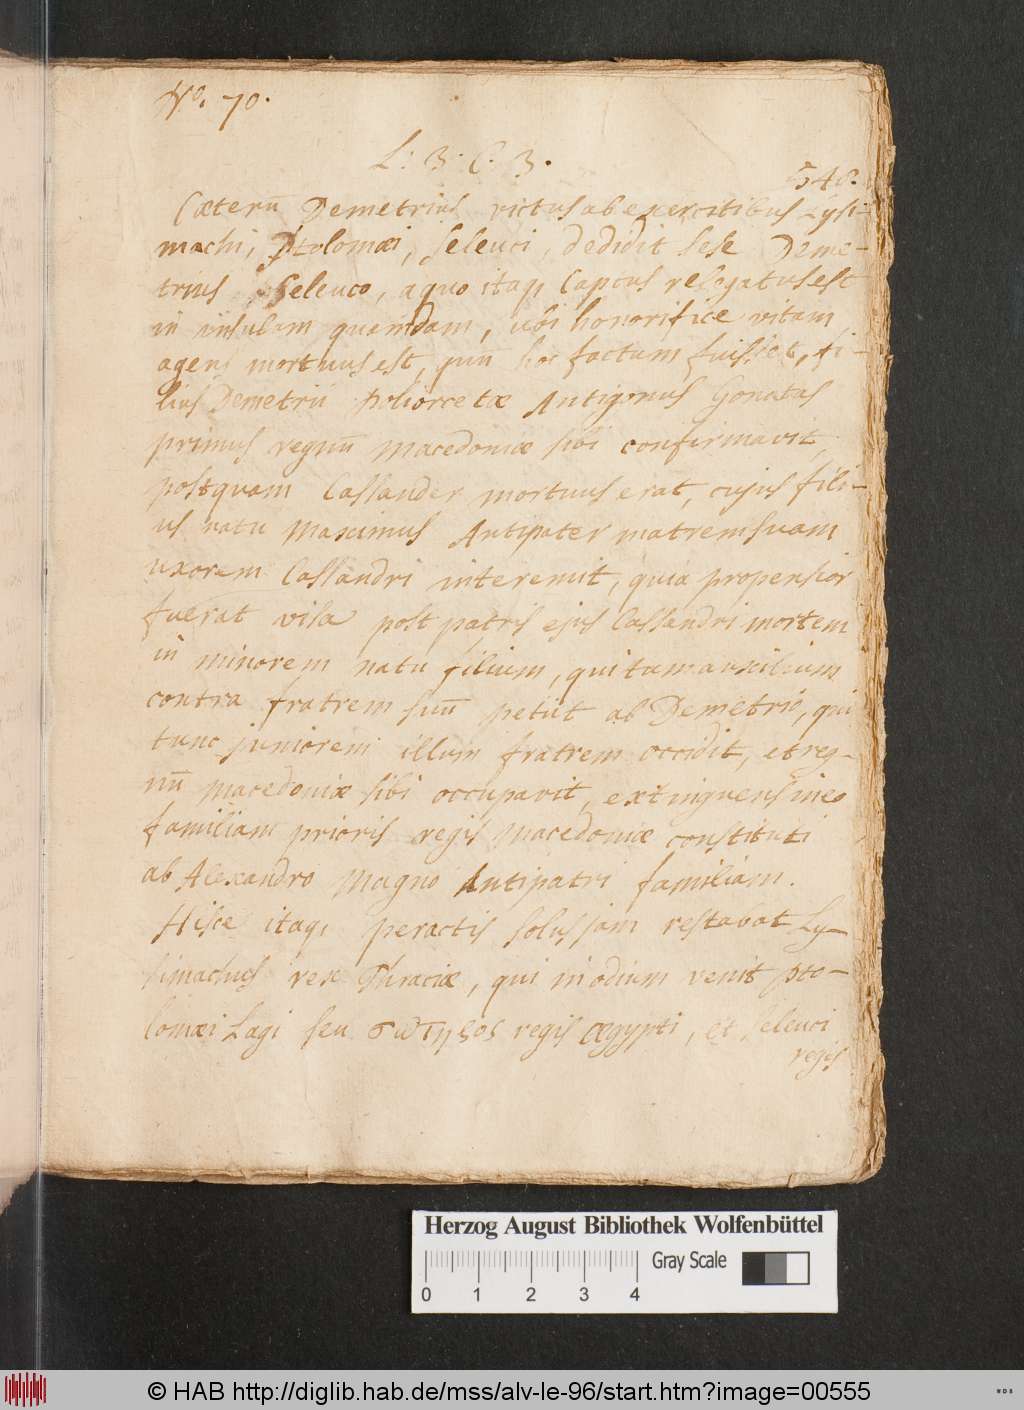 No. 70.
L: 3. C. 3.
548.
Cæterū Demetrius victus ab exercitibus Lysi-
machi, Ptolomæi, Seleuci, dedidit sese Deme-
trius Seleuco, a quo itaq, captus relegatus est
in insulam quamdam, ubi honorifice vitam
agens mortuus est, quū hoc factum fuisset, fi-
lius Demetrii poliorcetæ Antigonus Gonatas
primus regnū Macedoniæ sibi confirmavit,
postquam Cassander mortuus erat, cujus fili-
us natu maximus Antipater matrem suam
uxorem Cassandri interemit, quia propensior
fuerat visa post patris ejus Cassandri mortem
in minorem natu filium, qui tum auxilium
contra fratrem suū petiit ab Demetrio, qui
tunc juniorem illum fratrem occidit, et reg-
nū Macedoniæ sibi occupavit, extinguens in eo
familiam prioris regis Macedoniæ constituti
ab Alexandro Magno Antipatri familiam.
Hisce itaq, peractis solus jam restabat Ly-
simachus rex Thraciæ, qui in odium venit pto-
lomæi Lagi seu σωτηρος regis Ægypti, et Seleuci
regis
Herzog August Bibliothek Wolfenbüttel
Gray Scale
0 1 2 3 4
© HAB http://diglib.hab.de/mss/alv-le-96/start.htm?image=00555